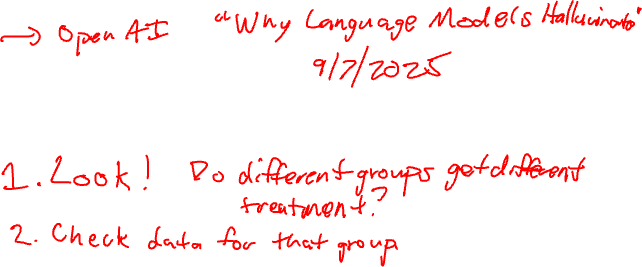 → Open AI "Why Language Models Hallucinate"
9/7/2025
1. Look! Do different groups get different
treatment?
2. Check data for that group